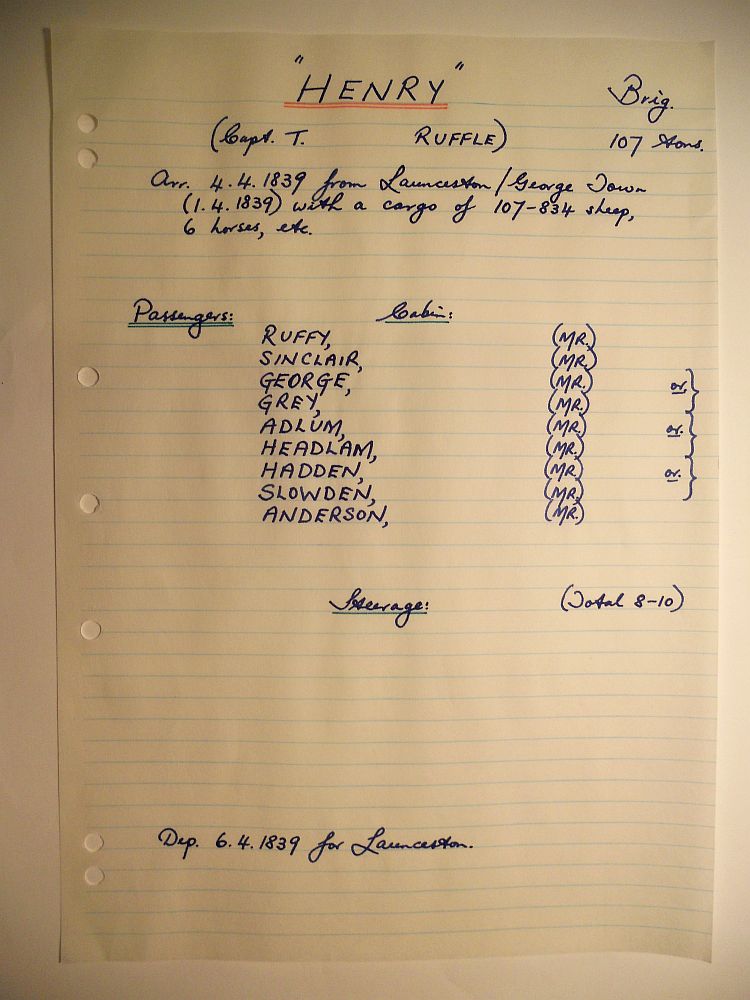 "HENRY" Brig.
(Capt. T. RUFFLE) 107 tons.
Arr. 4.4.1839 from Launceston/George Town
(1.4.1839) with a cargo of 107-834 sheep,
6 horses, etc.
Passengers: Cabin:
RUFFY, (MR.)
SINCLAIR, (MR.)
GEORGE, (MR.) or.
GREY, (MR.)
ADLUM, (MR.) or.
HEADLAM, (MR.)
HADDEN, (MR.) or.
SLOWDEN, (MR.)
ANDERSON, (MR.)
Steerage: (Total 8-10)
Dep. 6.4.1839 for Launceston.